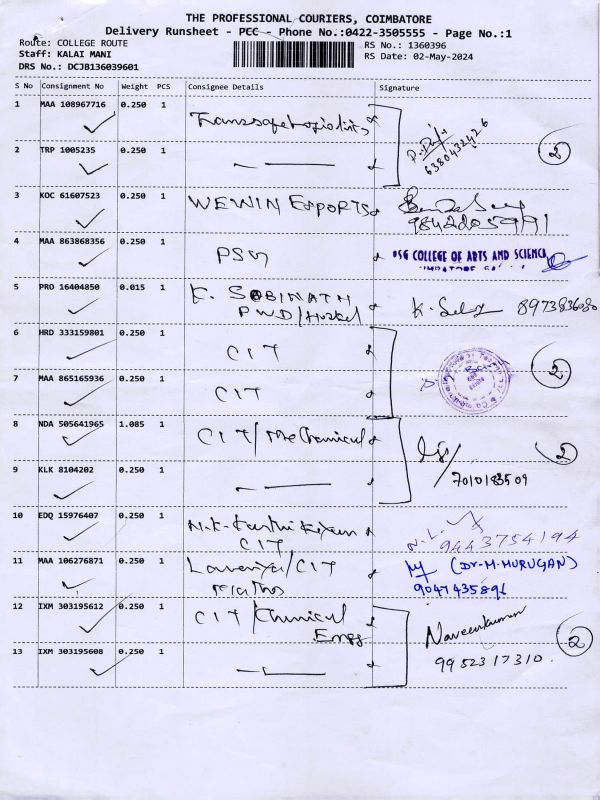 THE PROFESSIONAL COURIERS, COIMBATORE
Delivery Runsheet - PCC - Phone No.:0422-3505555 - Page No.:1
Route: COLLEGE ROUTE
RS No.: 1360396
Staff: KALAI MANI
RS Date: 02-May-2024
DRS No.: DCJB136039601
S No Consignment No Weight PCS Consignee Details Signature
1 MAA 108967716 0.250 1
6380432426
2
2 TRP 1005235 0.250 1
3 KOC 61607523 0.250 1 WEWIN Exports
4 MAA 863868356 0.250 1 PSG
PSG COLLEGE OF ARTS AND SCIENCE
5 PRO 16404850 0.015 1 K. SOBINATH
PWD/Hostel
K. 8973836080
6 HRD 333159801 0.250 1 CIT
2
7 MAA 865165936 0.250 1 CIT
8 NDA 505641965 1.085 1 CIT/Mechanical
2
7010183509
9 KLK 8104202 0.250 1
10 EDQ 15976407 0.250 1 N.K. Karthikeyan
CIT
9443754194
11 MAA 106276871 0.250 1 Lavanya/CIT
Maths
(Dr.M.MURUGAN)
9047435896
12 IXM 303195612 0.250 1 CIT/Chemical
Engg
Naveenkumar
2
13 IXM 303195608 0.250 1
9952317310.